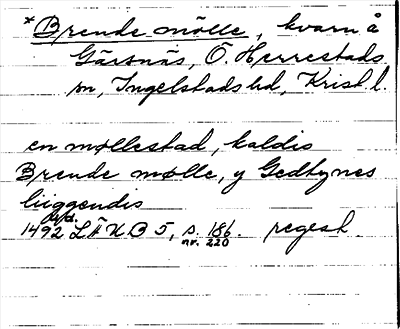 *Brende mölle, kvarn å
Gärsnäs, Ö. Herrestads
sn, Ingelstads hd, Krist. l.
en møllestad, kaldis
Brende mølle, y Gedhznes
liiggendis
1492 LÄUB 5, s. 186. regest.
nr. 220